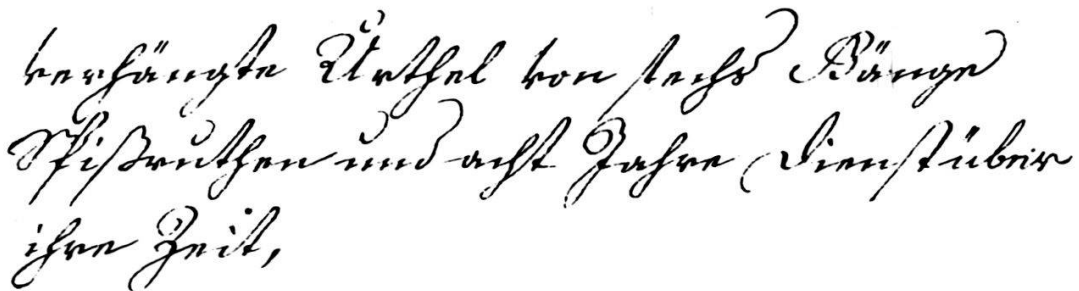 verhängte Urthel von sechs Gänge
Spißruthen und acht Jahre Dienst über
ihre Zeit,